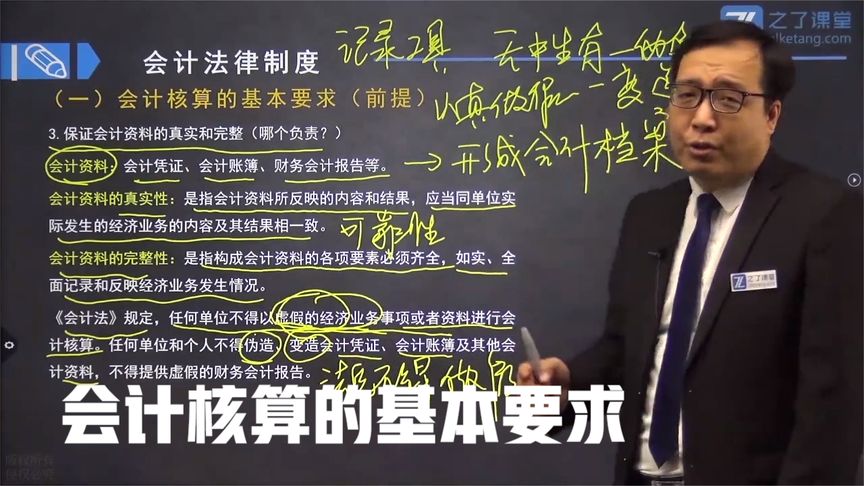 之了课堂
会计法律制度
记录工具
无中生有
(一)会计核算的基本要求(前提)
以真做假 一变造
3. 保证会计资料的真实和完整(哪个负责?)
会计资料:会计凭证、会计账簿、财务会计报告等。
→ 形成会计档案
会计资料的真实性:是指会计资料所反映的内容和结果,应当同单位实
际发生的经济业务的内容及其结果相一致。
可靠性
会计资料的完整性:是指构成会计资料的各项要素必须齐全,如实、全
面记录和反映经济业务发生情况。
《会计法》规定,任何单位不得以虚假的经济业务事项或者资料进行会
计核算。任何单位和个人不得伪造、变造会计凭证、会计账簿及其他会
计资料,不得提供虚假的财务会计报告。
之了课堂
会计核算的基本要求
版权所有
侵权必究